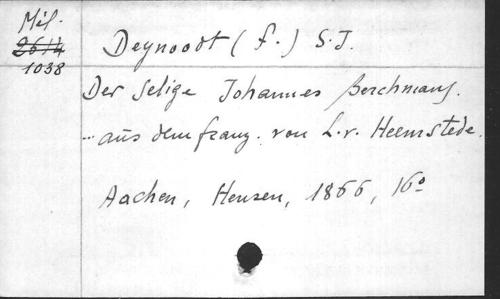 Mél.
2614
1038
Deynoodt (f.) S.J.
Der Selige Johannes Berchmans.
... aus dem franz. von L.v. Heemstede.
Aachen, Hensen, 1866, 16°